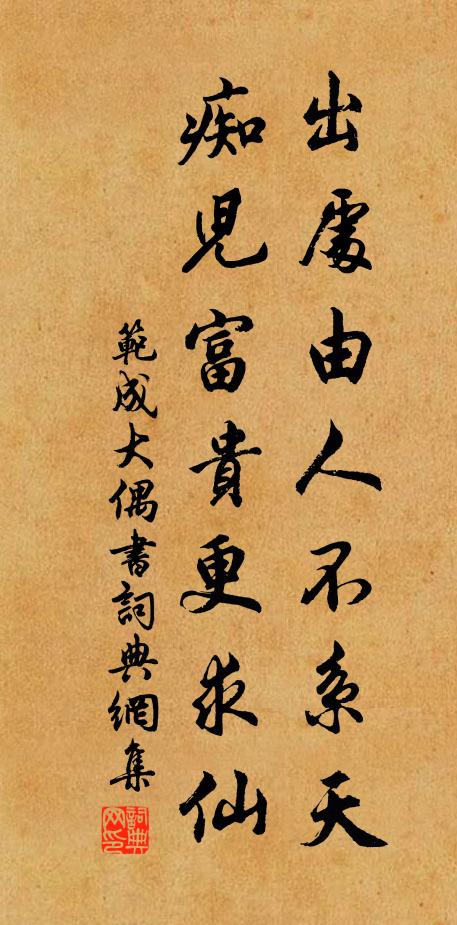 出處由人不系天
痴兒富貴更求仙
範成大偶書詞典網集
詞典网印